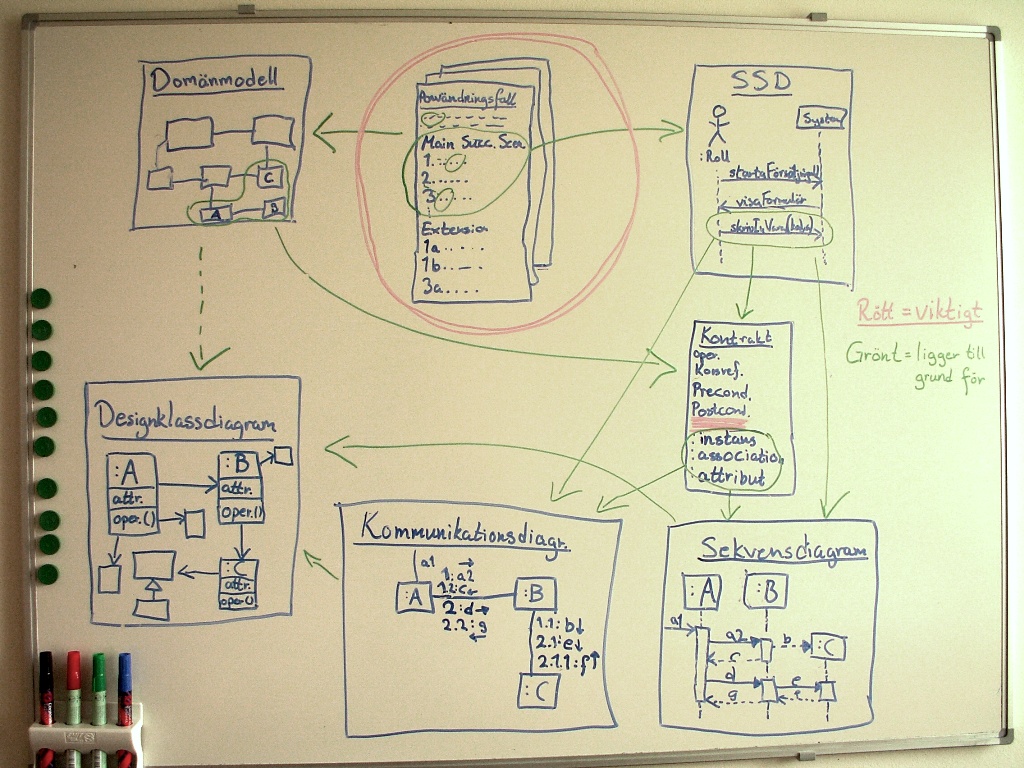 Domänmodell
C
A
B
Användningsfall
Main Succ. Scen
1......
2......
3......
Extension
1a.....
1b.....
3a....
SSD
System
: Roll
visaFormulär
Kontrakt
oper.
Korsref.
Precond.
Postcond.
: instans
: association
: attribut
Rött = viktigt
Grönt = ligger till
grund för
Designklassdiagram
:A
attr.
oper.()
:B
attr.
oper.()
:C
attr.
oper()
Kommunikationsdiagr.
a1
1:a2
1.2:c
2:d
2.2:g
:A
:B
1.1:b
2.1:e
2.1.1:f
:C
Sekvensdiagram
:A
:B
a1
a2
b
:C
c
d
e
g